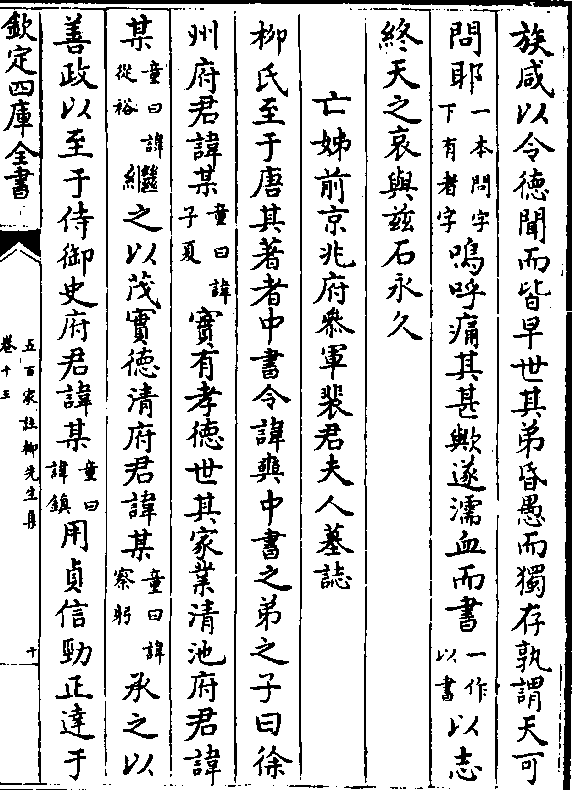 族咸以令德聞而皆早世其弟昏愚而獨存孰謂天可
問耶一本問字下有者字嗚呼痛其甚歟遂濡血而書一作以書以志
終天之哀與兹石永久
亡姊前京兆府叅軍裴君夫人墓誌
柳氏至于唐其著者中書令諱奭中書之弟之子曰徐
州府君諱某童曰諱子夏實有孝德世其家業清池府君諱
某童曰諱從裕繼之以茂實德清府君諱某童曰諱察躬承之以
善政以至于侍御史府君諱某童曰諱鎮用貞信勁正達于
欽定四庫全書
五百家註柳先生集
卷十三
十